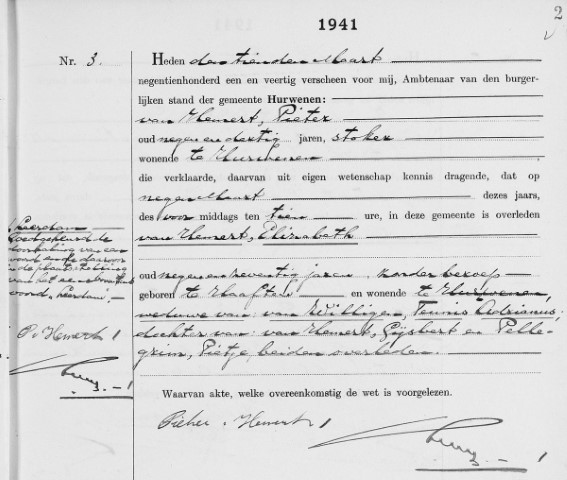 1941
2
Nr. 3.
Heden den tienden Maart
negentienhonderd een en veertig verscheen voor mij, Ambtenaar van den burger-
lijken stand der gemeente Hurwenen:
van Hemert, Pieter
oud negen en dertig jaren, stoker
wonende te Hurwenen
die verklaarde, daarvan uit eigen wetenschap kennis dragende, dat op
negen Maart dezes jaars,
des voor middags ten tien ure, in deze gemeente is overleden
van Hemert, Elizabeth
oud negen en zeventig jaren, zonder beroep
geboren te Haaften en wonende te Hurwenen,
weduwe van: van Willigen, Teunis Adrianus;
dochter van: van Hemert, Gijsbert en Pelle-
grim, Pietje, beiden overleden.
Waarvan akte, welke overeenkomstig de wet is voorgelezen.
Pieter v Hemert
Goedgekeurd de
doorhaling van een
woord en de daarvoor
in de plaats stelling
van het
woord
P v Hemert